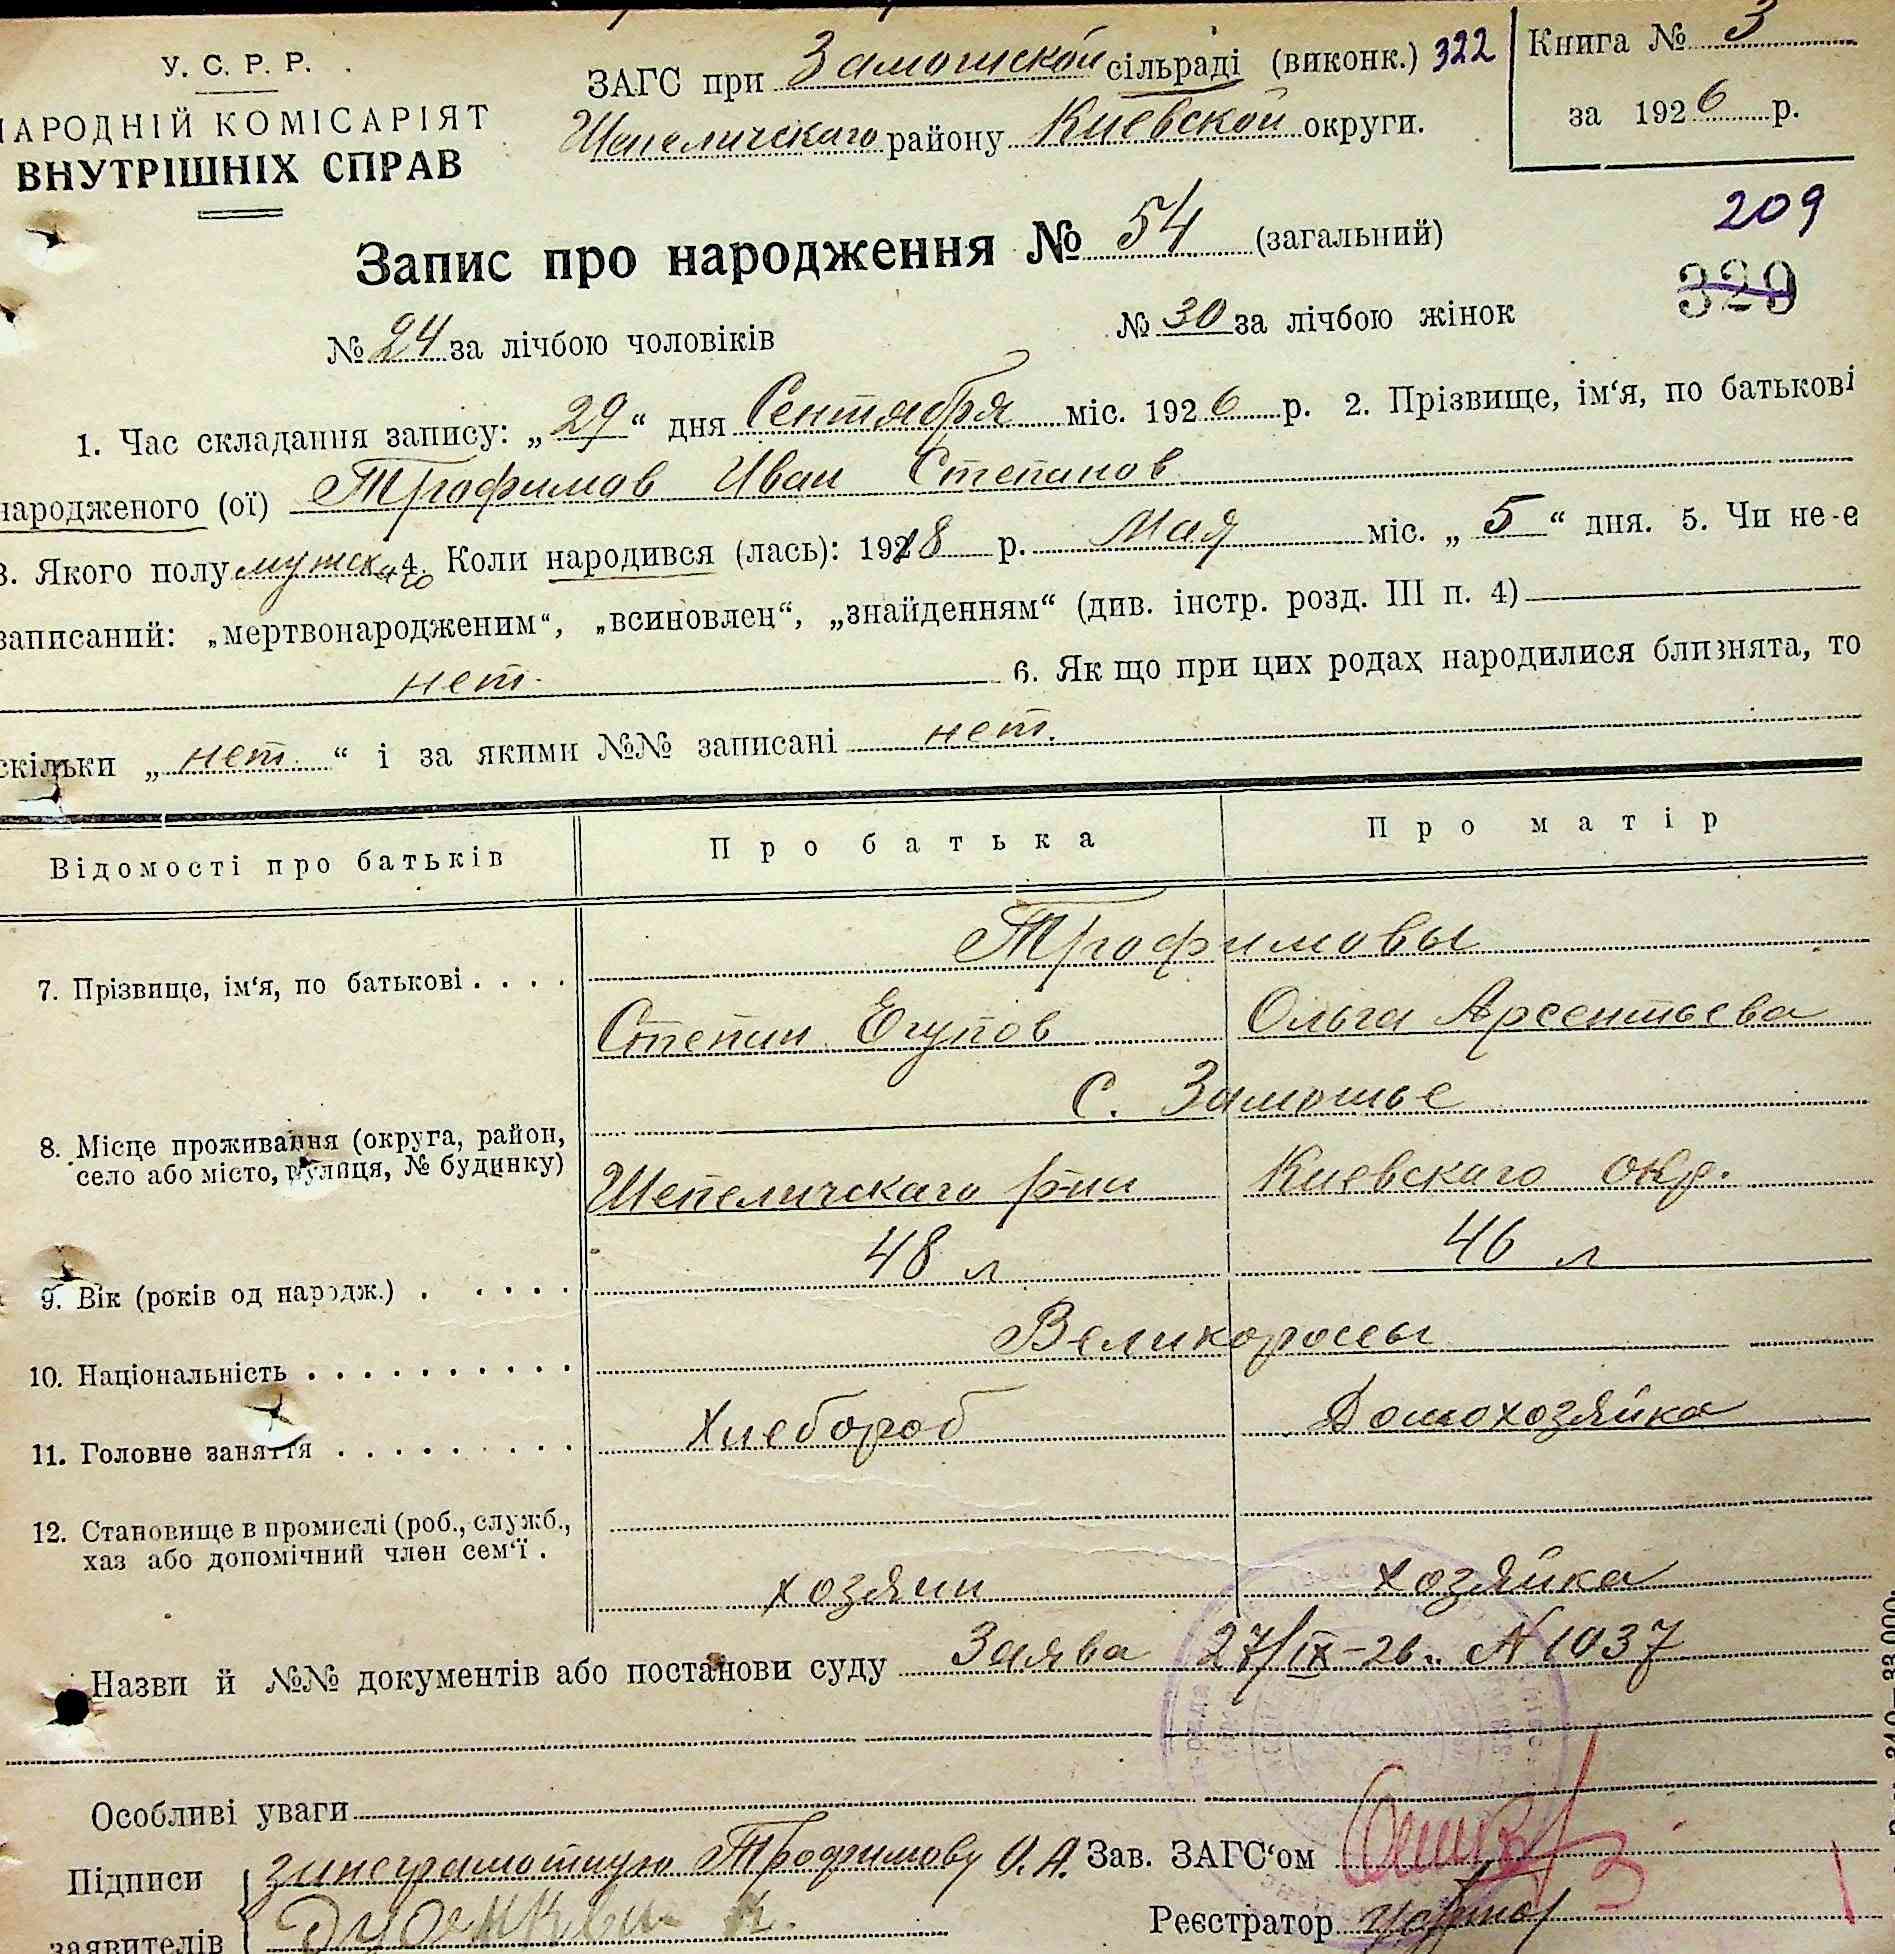 У. С. Р. Р.
НАРОДНІЙ КОМІСАРІЯТ
ВНУТРІШНІХ СПРАВ
ЗАГС при Замошской сільраді (виконк.) 322
Шепеличскаго району Киевской округи.
Книга № 3
за 1926 р.
209
329
Запис про народження № 54 (загальний)
№ 24 за лічбою чоловіків № 30 за лічбою жінок
1. Час складання запису: „29“ дня Сентября міс. 1926 р. 2. Прізвище, ім‘я, по батькові
народженого (ої) Трофимов Иван Степанов
3. Якого полу мужскаго 4. Коли народився (лась): 1918 р. Мая міс. „5“ дня. 5. Чи не-є
записаний: „мертвонародженим“, „всиновлен“, „знайденням“ (див. інстр. розд. III п. 4)
нет. 6. Як що при цих родах народилися близнята, то
скільки „нет.“ і за якими №№ записані нет.
Відомості про батьків Про батька Про матір
Трофимовы
7. Прізвище, ім‘я, по батькові . . . .
Степан Егупов Ольга Арсентьева
С. Замошье
8. Місце проживання (округа, район,
село або місто, вулиця, № будинку)
Шепеличскаго р-на Киевскаго окр.
9. Вік (років од народж.) . . . . . 48 л 46 л
10. Національність . . . . . . . . . . Великороссы
11. Головне заняття . . . . . . . . . Хлебороб Домохозяйка
12. Становище в промислі (роб., служб.,
хаз або допомічний член сем‘ї .
хозяин хозяйка
Назви й №№ документів або постанови суду Заява 27/IX-26. N 1037
Особливі уваги
Підписи
заявителів
за неграмотную Трофимову О. А. Зав. ЗАГС‘ом
Реєстратор